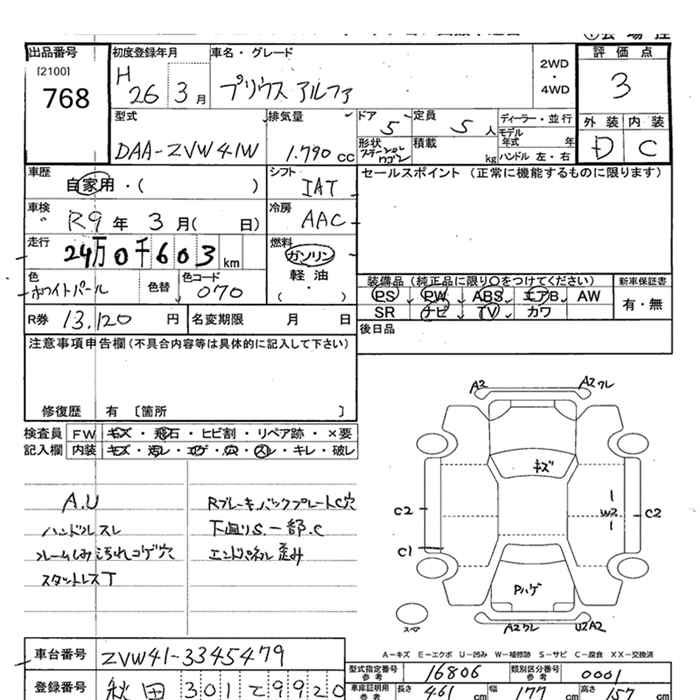 出品番号 初度登録年月 車名・グレード 評価点
[2100]
768
H 26 3月 プリウス アルファ
2WD・4WD
3
型式 排気量 ドア 定員 ディーラー・並行 外装 内装
DAA-ZVW41W 1.790cc 5 5人
モデル年式 年
D C
形状 ステーションワゴン 積載 kg ハンドル 左・右
車歴 自家用・( ) シフト IAT
セールスポイント (正常に機能するものに限ります)
車検 R9年 3月( 日) 冷房 AAC
走行 24万0千603km 燃料 ガソリン 軽油 ( ・ )
色 ホワイトパール 色替 色コード 070
装備品 (純正品に限り○をつけてください) 新車保証書
PS PW ABS エアB AW 有・無
SR ナビ TV カワ
R券 13,120円 名変期限 月 日
後日品
注意事項申告欄 (不具合内容等は具体的に記入して下さい)
修復歴 有 〔箇所 〕
検査員 FW キズ・飛石・ヒビ割・リペア跡・×要
記入欄 内装 キズ・汚レ・コゲ・穴・スレ・キレ・破レ
A.U
ハンドルスレ
汚れコゲ穴
Rブレーキバックプレート穴
下廻りS.一部.C
エンドパネル歪み
A2 A2ワレ
キズ
C2 W2 C2
C1
Pハゲ
スペア
A2ワレ U2A2
A-キズ E-エクボ U-凹み W-補修跡 S-サビ C-腐食 XX-交換済
車台番号 ZVW41-3345479
型式指定番号 参考 16806 類別区分番号 参考 0001
登録番号 秋田 301 て 9920
車庫証明用 参考 長さ 461cm 幅 177cm 高さ 157cm